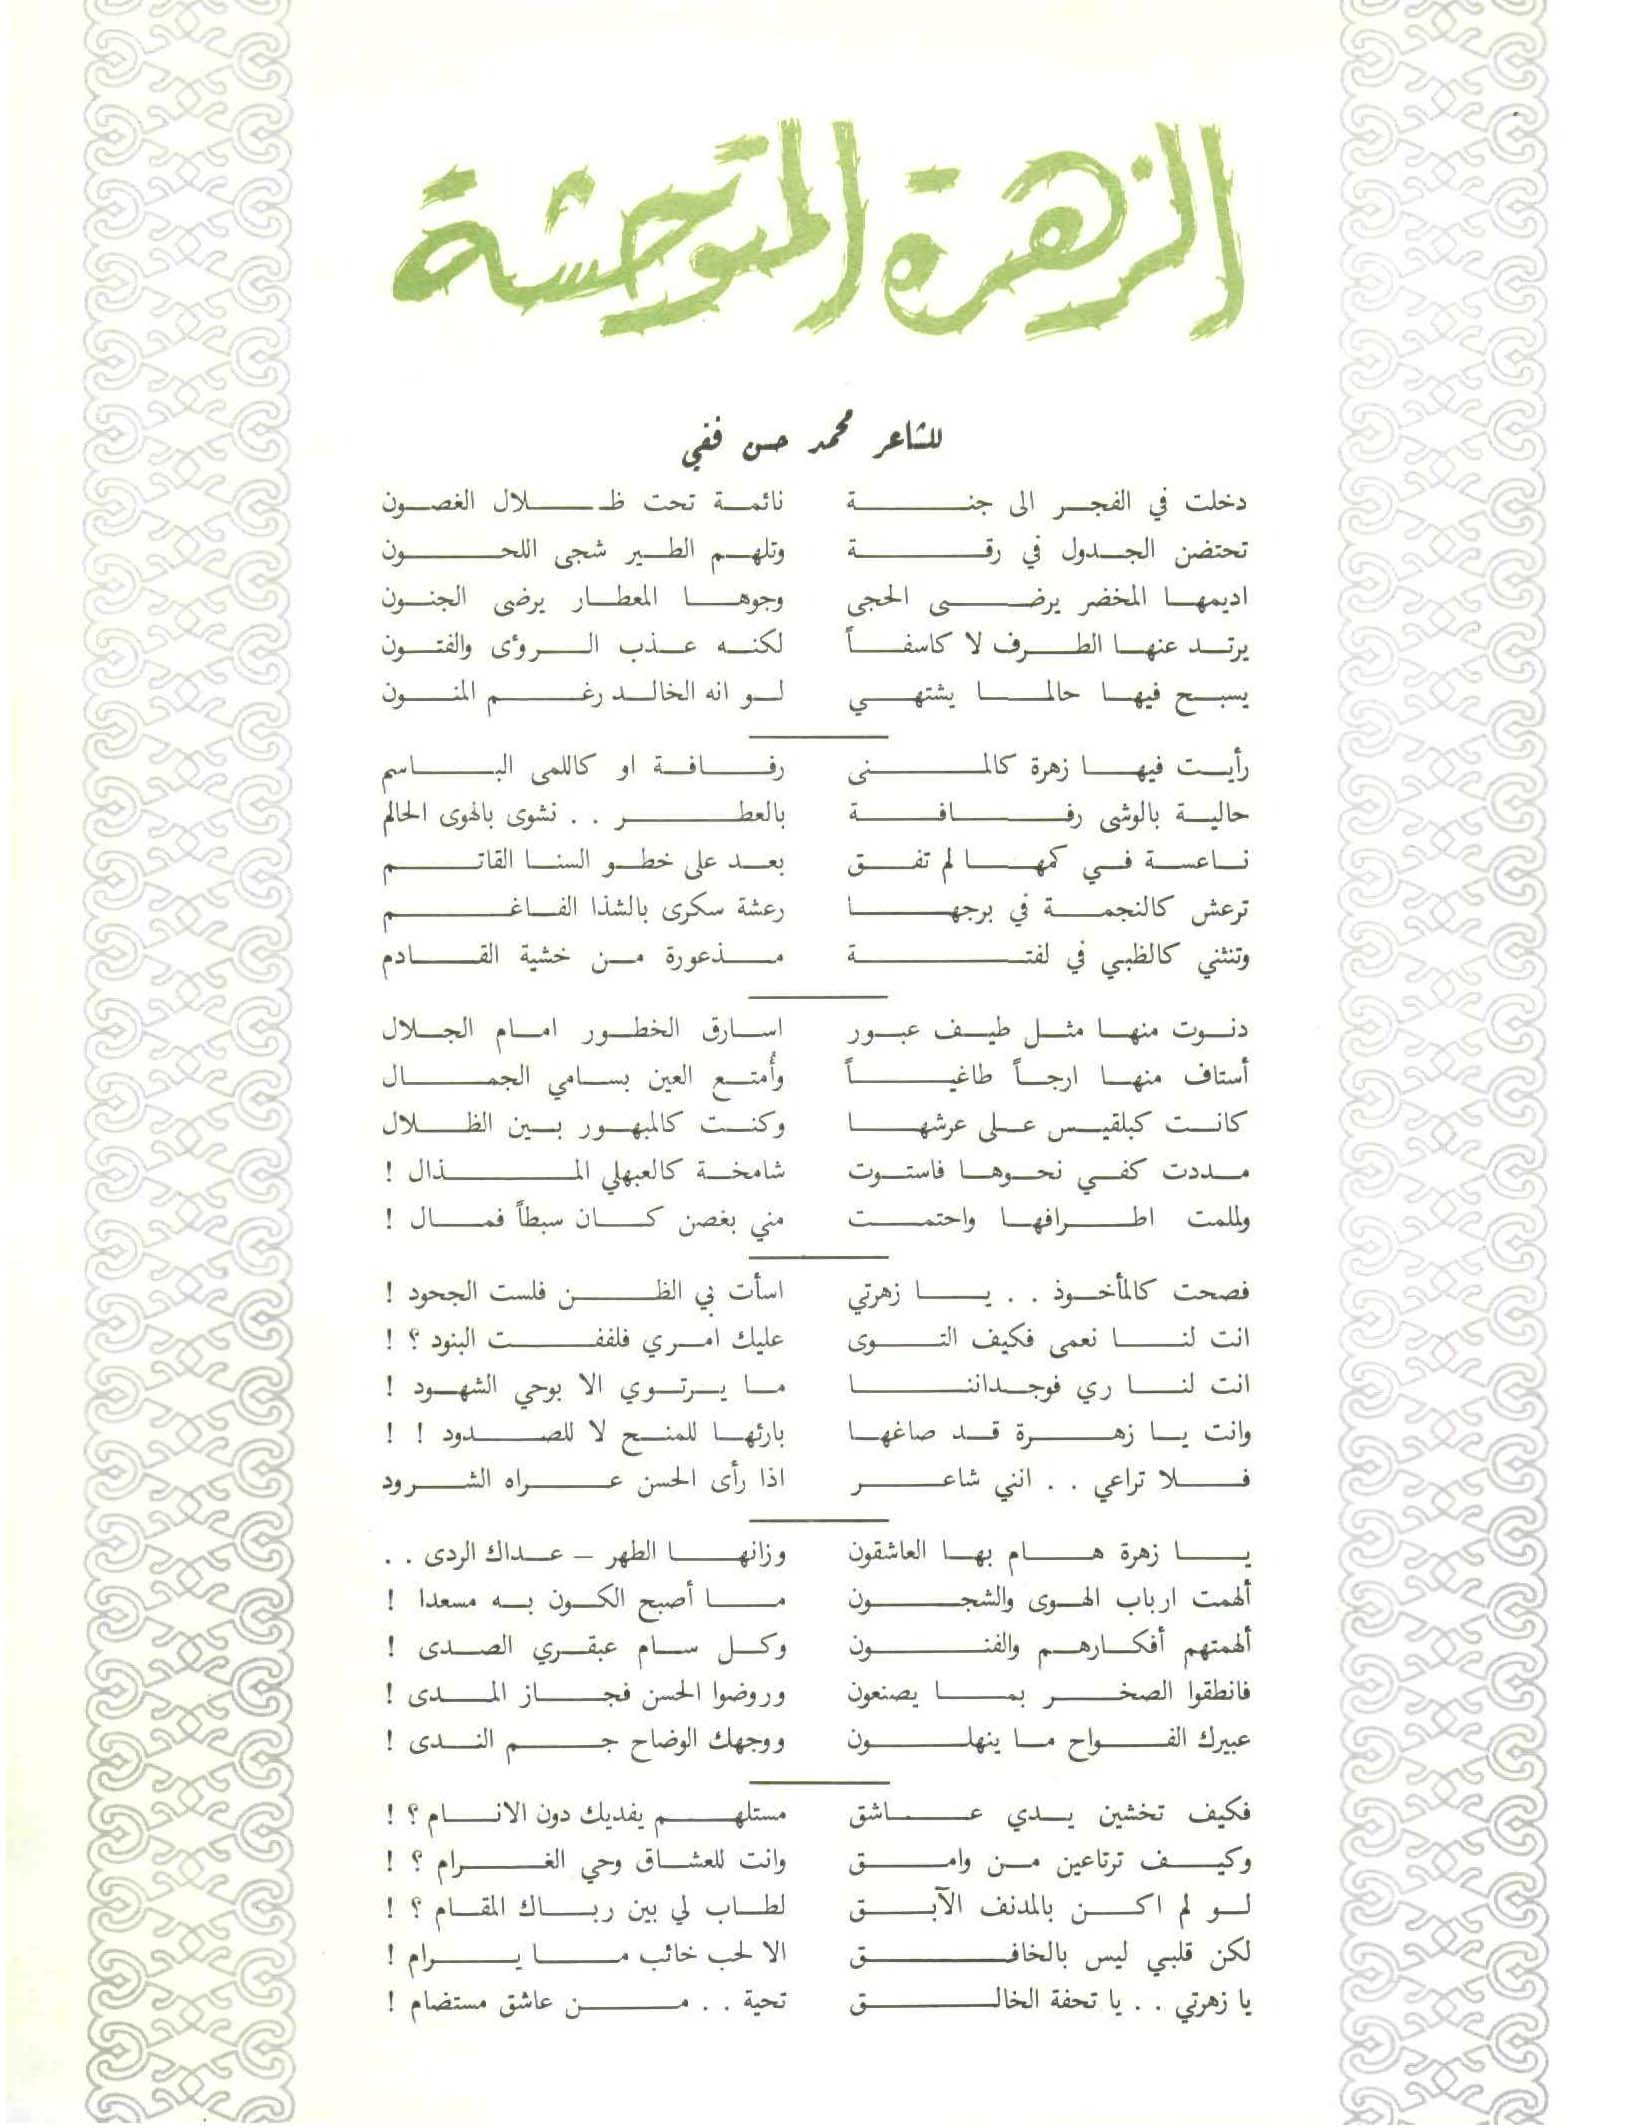 الزهرة المتوحشة
للشاعر محمد حسن فقي
دخلت في الفجر الى جنة نائمة تحت ظلال الغصون
تحتضن الجدول في رقة وتلهم الطير شجى اللحون
اديمها المخضر يرضى الحجى وجوها المعطار يرضى الجنون
يرتد عنها الطرف لا كاسفاً لكنه عذب الرؤى والفتون
يسبح فيها حالما يشتهي لو انه الخالد رغم المنون
رأيت فيها زهرة كالمنى رفافة او كاللمى الباسم
حالية بالوشى رفافة بالعطر . . نشوى بالهوى الحالم
ناعسة في كمها لم تفق بعد على خطو السنا القاتم
ترعش كالنجمة في برجها رعشة سكرى بالشذا الفاغم
وتنثني كالظبي في لفتة مذعورة من خشية القادم
دنوت منها مثل طيف عبور اسارق الخطور امام الجلال
أستاف منها ارجاً طاغياً وأُمتع العين بسامي الجمال
كانت كبلقيس على عرشها وكنت كالمبهور بين الظلال
مددت كفي نحوها فاستوت شامخة كالعبهلي المذال !
ولملمت اطرافها واحتمت مني بغصن كان سبطاً فمال !
فصحت كالمأخوذ . . يا زهرتي اسأت بي الظن فلست الجحود !
انت لنا نعمى فكيف التوى عليك امري فلففت البنود ؟ !
انت لنا ري فوجداننا ما يرتوي الا بوحي الشهود !
وانت يا زهرة قد صاغها بارئها للمنح لا للصدود ! !
فلا تراعي . . انني شاعر اذا رأى الحسن عراه الشرود
يا زهرة هام بها العاشقون وزانها الطهر – عداك الردى . .
ألهمت ارباب الهوى والشجون ما أصبح الكون به مسعدا !
ألهمتهم أفكارهم والفنون وكل سام عبقري الصدى !
فانطقوا الصخر بما يصنعون وروضوا الحسن فجاز المدى !
عبيرك الفواح ما ينهلون ووجهك الوضاح جم الندى !
فكيف تخشين يدي عاشق مستلهم يفديك دون الانام ؟ !
وكيف ترتاعين من وامق وانت للعشاق وحي الغرام ؟ !
لو لم اكن بالمدنف الآبق لطاب لي بين رباك المقام ؟ !
لكن قلبي ليس بالخافق الا لحب خائب ما يرام !
يا زهرتي . . يا تحفة الخالق تحية . . من عاشق مستضام !